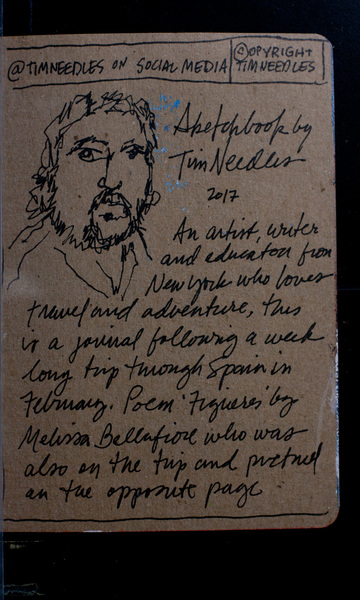 @TIMNEEDLES ON SOCIAL MEDIA
©OPYRIGHT
TIMNEEDLES
Sketchbook by
Tim Needles
2017
An artist, writer
and educator from
New York who loves
travel and adventure, this
is a journal following a week
long trip through Spain in
February. Poem 'Figueres' by
Melissa Bellafiore who was
also on the trip and pictured
on the opposite page